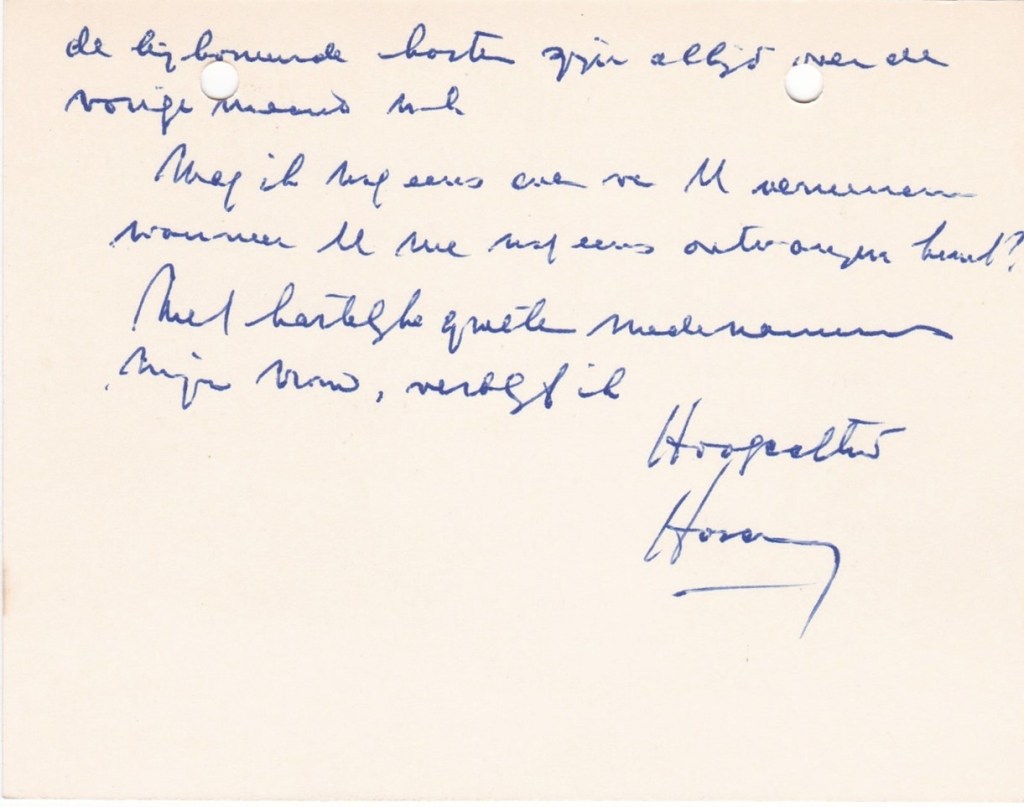 de bijkomende kosten zijn altijd over de
vorige maand
Mag ik nog eens even van U vernemen
wanneer U me nog eens ontvangen kunt?
Met hartelijke groeten mede namens
mijn vrouw, verblijf ik
Hoogachtend